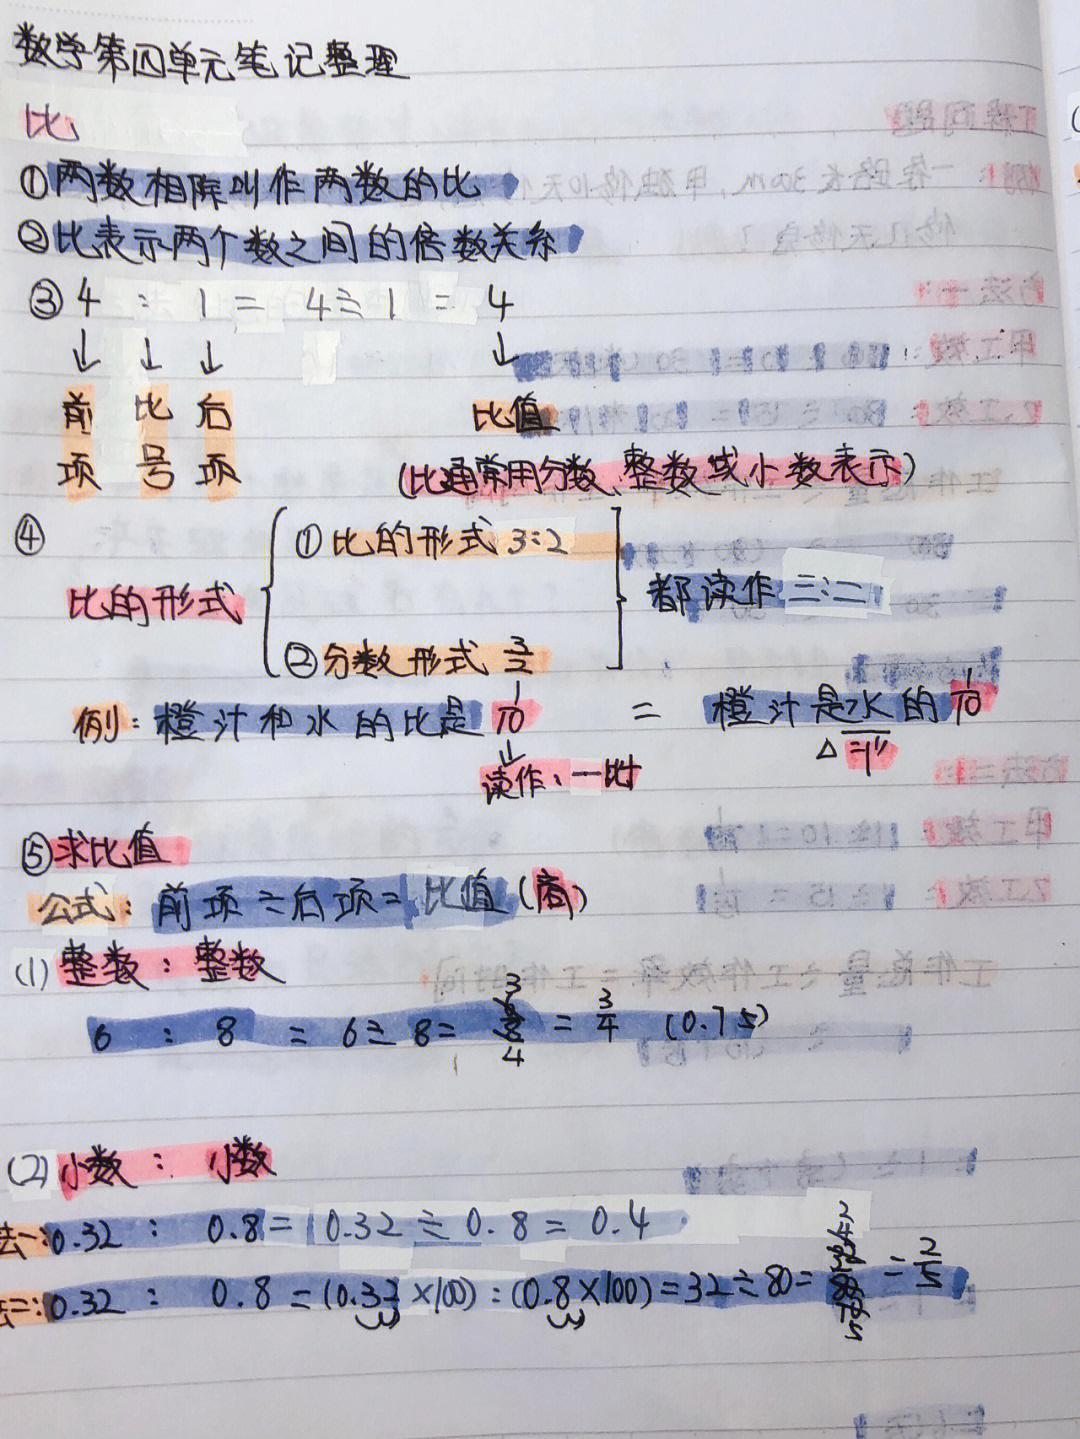 数学第四单元笔记整理
比
①两数相除叫作两数的比
②比表示两个数之间的倍数关系
③ 4 : 1 = 4÷1 = 4
↓ ↓ ↓ ↓
前项 比号 后项 比值
(比通常用分数、整数或小数表示)
④
①比的形式 3:2
比的形式
都读作 三:二
②分数形式 3/2
例: 橙汁和水的比是 1/10 = 橙汁是水的 1/10
读作: 一比十
⑤求比值
公式: 前项÷后项=比值(商)
(1) 整数: 整数
6 : 8 = 6÷8 = 6/8 = 3/4 (0.75)
(2) 小数: 小数
法一: 0.32 : 0.8 = 0.32÷0.8 = 0.4
法二: 0.32 : 0.8 = (0.32×100):(0.8×100)=32÷80= 32/80 = 2/5